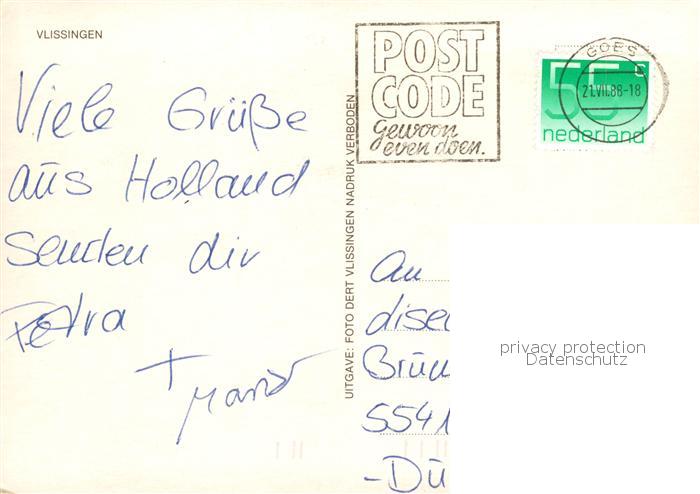 VLISSINGEN
Viele Grüße
aus Holland
senden dir
Petra
+
UITGAVE: FOTO DERT VLISSINGEN NADRUK VERBODEN
POST
CODE
Gewoon
even doen.
GOES
21.VII.88-18
55 c
nederland
An
disen
Brüm
5541
-Dü
privacy protection
Datenschutz